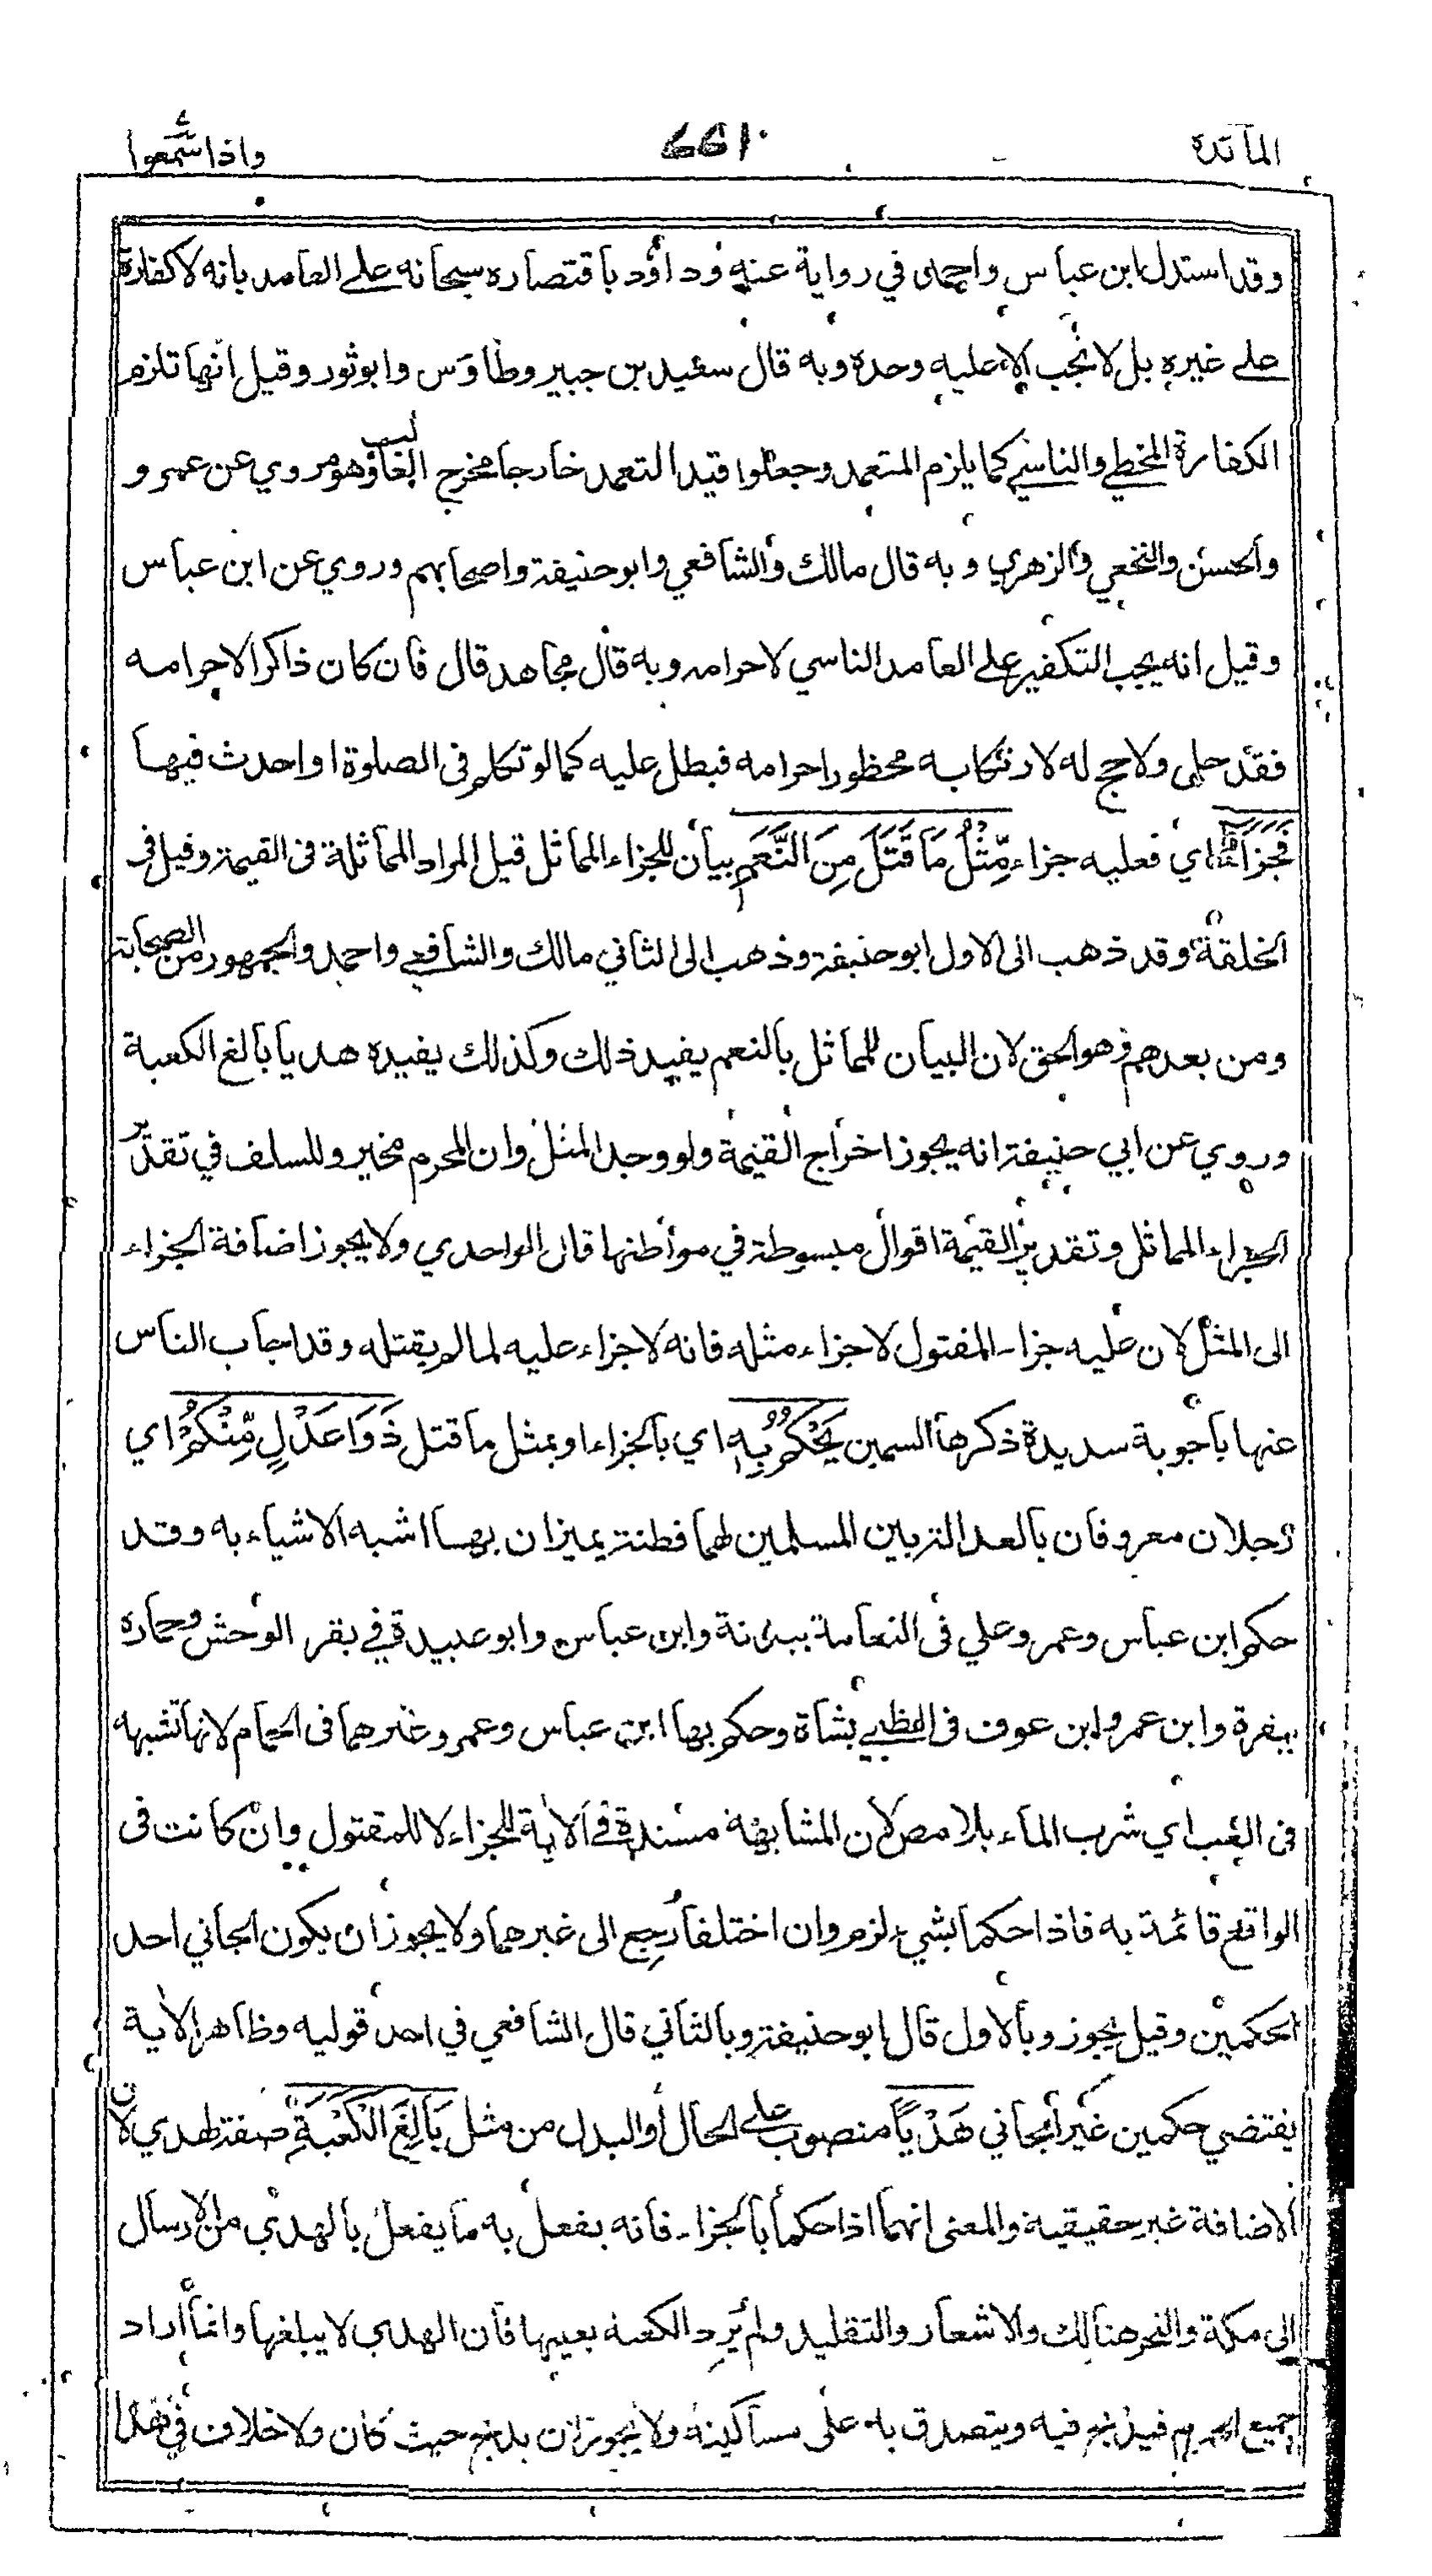 المائدة
واذا سمعوا
وقد استدل ابن عباس واحمد في رواية عنه وداؤد باقتصاره سبحانه على العامد بانه لا كفارة
على غيره بل لا تجب الا عليه وحده وبه قال سعيد بن جبير وطاوس وابو ثور وقيل انها تلزم
الكفارة المخطي والناسي كما يلزم المتعمد وجعلوا قيد التعمد خارجا مخرج الغالب وهو مروي عن عمر و
والحسن والنخعي والزهري وبه قال مالك والشافعي وابو حنيفة واصحابهم وروي عن ابن عباس
وقيل انه يجب التكفير على العامد الناسي لاحرامه وبه قال مجاهد قال فان كان ذاكرا لاحرامه
فقد حل ولا حج له لارتكابه محظور احرامه فبطل عليه كما لو تكلم في الصلوة او احدث فيها
فَجَزَاءٌ اي فعليه جزاء مِّثْلُ مَا قَتَلَ مِنَ النَّعَمِ بيان للجزاء المماثل قيل المراد المماثلة في القيمة وقيل في
الخلقة وقد ذهب الى الاول ابو حنيفة وذهب الى الثاني مالك والشافعي واحمد والجمهور من الصحابة
ومن بعدهم وهو الحق لان البيان للمماثل بالنعم يفيد ذلك وكذلك يفيده هديا بالغ الكعبة
وروي عن ابي حنيفة انه يجوز اخراج القيمة ولو وجد المثل وان المحرم مخير وللسلف في تقدير
الجزاء المماثل وتقدير القيمة اقوال مبسوطة في مواطنها قال الواحدي ولا يجوز اضافة الجزاء
الى المثل لان عليه جزاء المقتول لا جزاء مثله فانه لا جزاء عليه لما لم يقتله وقد اجاب الناس
عنها باجوبة سديدة ذكرها السمين يَحْكُمُ بِهِ اي بالجزاء او بمثل ما قتل ذَوَا عَدْلٍ مِّنْكُمْ اي
رجلان معروفان بالعدالة بين المسلمين لهما فطنة يميزان بها اشبه الاشياء به وقد
حكم ابن عباس وعمر وعلي في النعامة ببدنة وابن عباس وابو عبيدة في بقر الوحش وحماره
ببقرة وابن عمر وابن عوف في الظبي بشاة وحكم بها ابن عباس وعمر وغيرهما في الحمام لانها تشبهه
في العب اي شرب الماء بلا مص لان المشابهة مسندة في الاية للجزاء لا للمقتول وان كانت في
الواقع قائمة به فاذا حكما بشيء لزم وان اختلفا رجع الى غيرهما ولا يجوز ان يكون الجاني احد
الحكمين وقيل يجوز وبالاول قال ابو حنيفة وبالثاني قال الشافعي في احد قوليه وظاهر الاية
يقتضي حكمين غير الجاني هَدْيًا منصوب على الحال او البدل من مثل بَالِغَ الْكَعْبَةِ صفة لهدي لان
الاضافة غير حقيقية والمعنى انهما اذا حكما بالجزاء فانه يفعل به ما يفعل بالهدي من الارسال
الى مكة والنحر هنالك والاشعار والتقليد ولم يرد الكعبة بعينها فان الهدي لا يبلغها وانما اراد
جميع الحرم فيذبح فيه ويتصدق به على مساكينه ولا يجوز ان يذبح حيث كان ولا خلاف في هذا